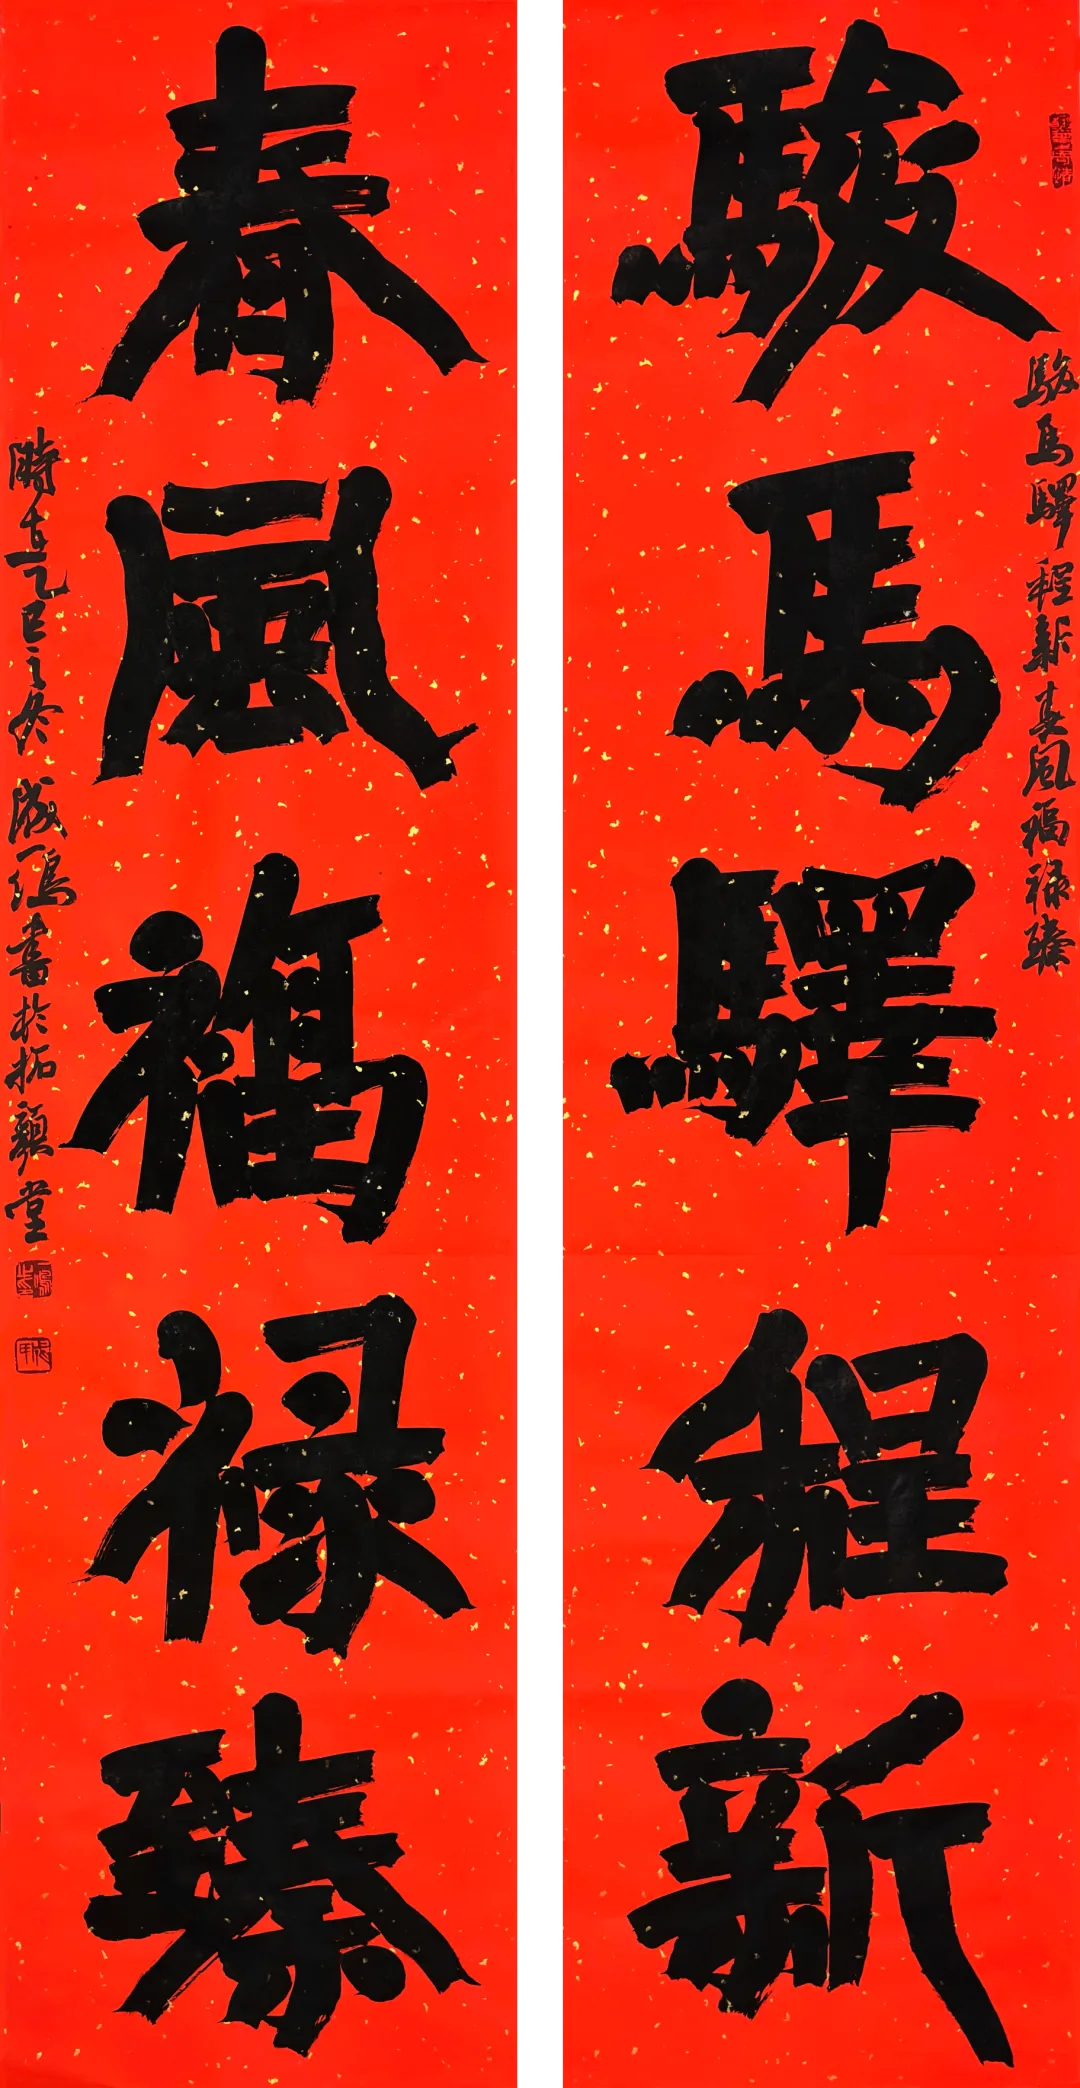 駿馬驛程新
駿馬驛程新春風福禄臻
春風福禄臻
時在乙巳之冬成一鳴書於拓顏堂